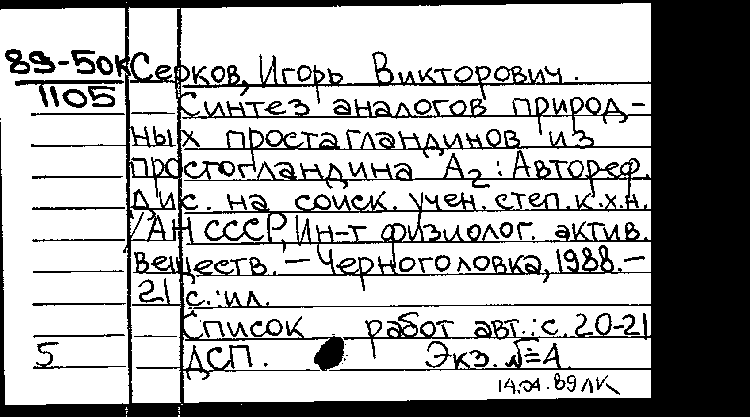 89-50к
1105
Серков, Игорь Викторович.
Синтез аналогов природ-
ных простагландинов из
простогландина А₂ : Автореф.
дис. на соиск. учен. степ. к.х.н.
/АН СССР, Ин-т физиолог. актив.
веществ. — Черноголовка, 1988. —
21 с. : ил.
Список работ авт. : с. 20-21
5 ДСП. Экз. №=А
14.04.89 ЛК